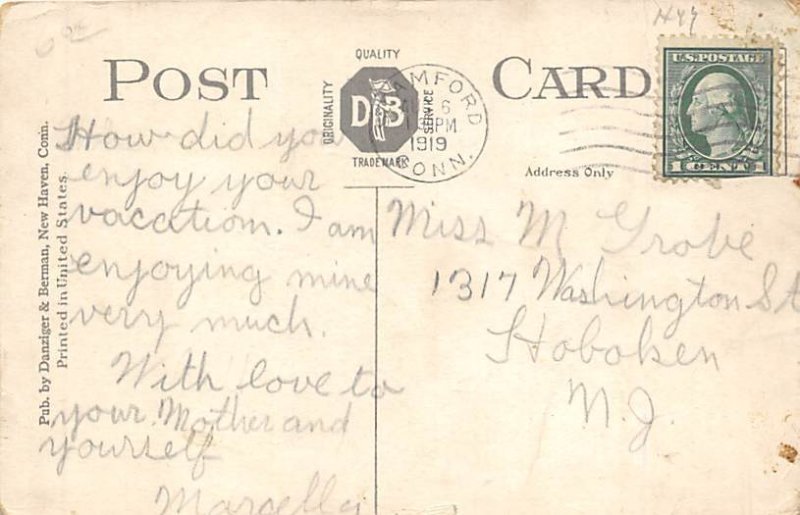 POST CARD
QUALITY
ORIGINALITY
D B
SERVICE
TRADE MARK
AMFORD
6
PM
1919
CONN.
U.S. POSTAGE
1 CENT 1
Address Only
How did you
enjoy your
vacation. I am
enjoying mine
very much.
With love to
your Mother and
yourself
Marcella
Miss M Grobe
1317 Washington St
Hoboken
N.J.
Pub. by Danziger & Berman, New Haven, Conn.
Printed in United States.